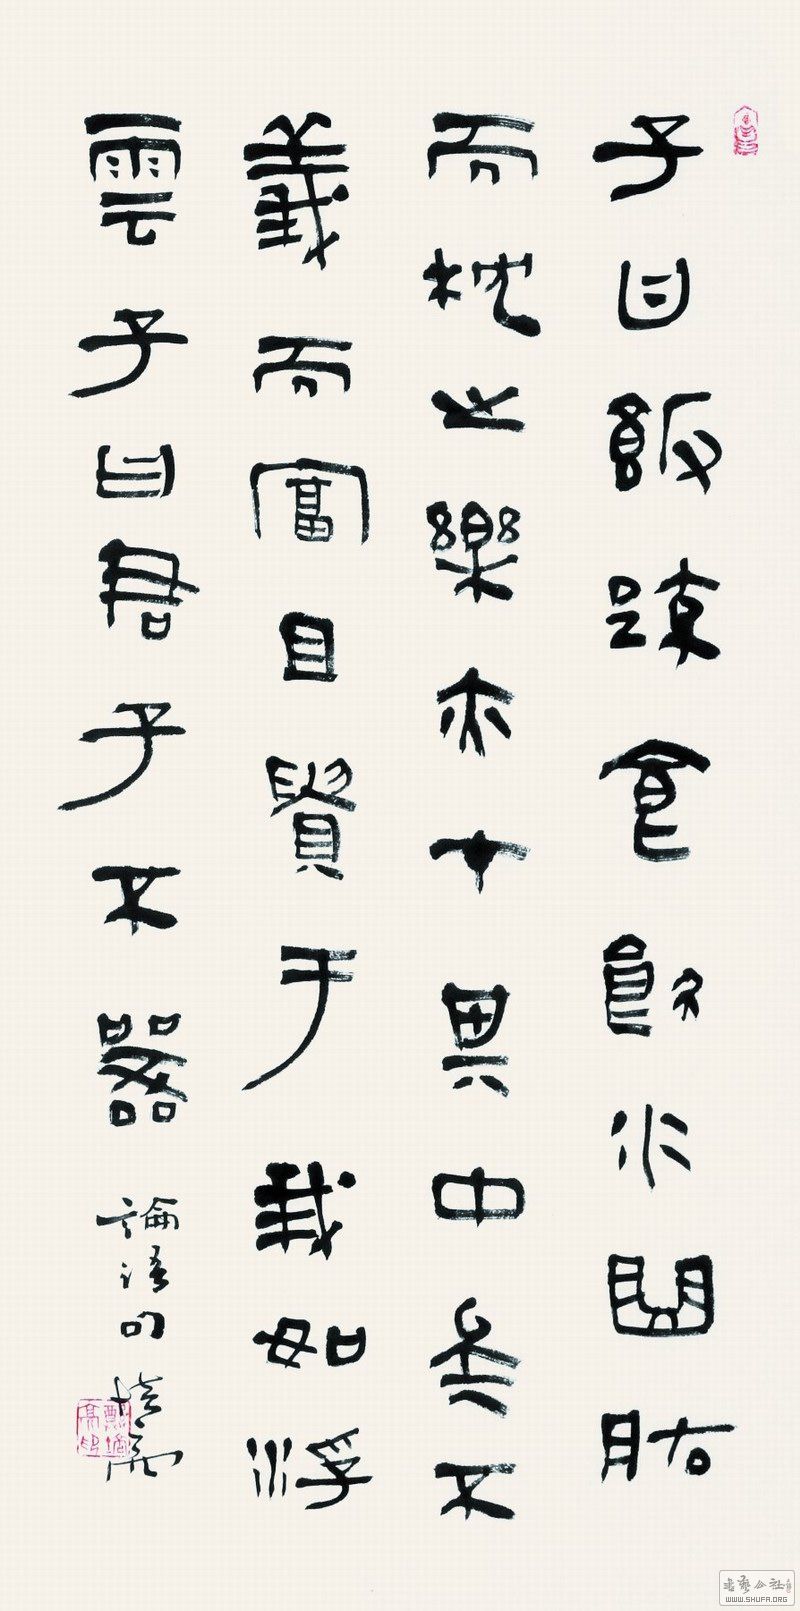 子曰飯疎食飲水曲肱
而枕之樂亦在其中矣不
義而富且貴于我如浮
雲子曰君子不器
論語句
培亮
書藝公社
WWW.SHUFA.ORG